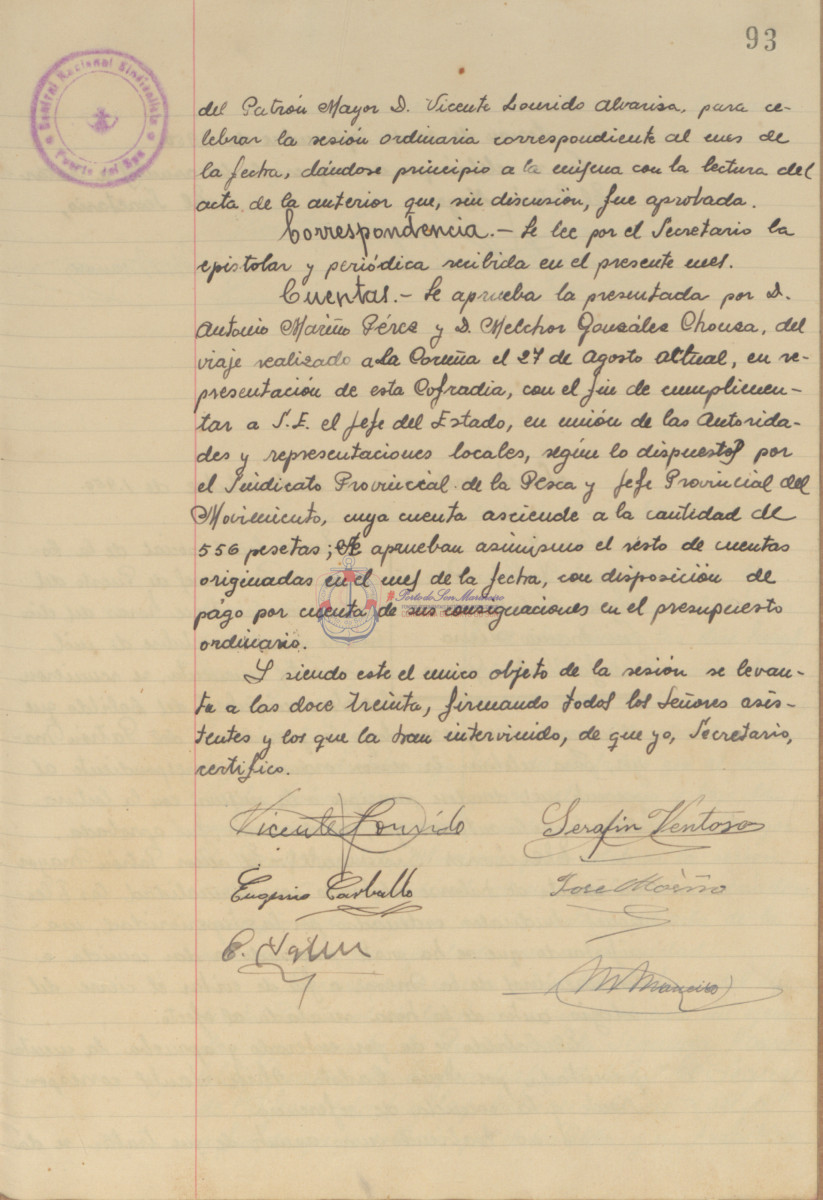 93
Central Nacional Sindicalista
Puerto del Son
del Patrón Mayor D. Vicente Lourido Alvarisa, para ce-
lebrar la sesión ordinaria correspondiente al mes de
la fecha, dándose principio a la misma con la lectura del
acta de la anterior que, sin discusión, fue aprobada.
Correspondencia.- Se lee por el Secretario la
epistolar y periódica recibida en el presente mes.
Cuentas.- Se aprueba la presentada por D.
Antonio Mariño Pérez y D. Melchor González Chouza, del
viaje realizado a La Coruña el 27 de Agosto actual, en re-
presentación de esta Cofradia, con el fin de cumplimen-
tar a S.E. el Jefe del Estado, en unión de las Autorida-
des y representaciones locales, según lo dispuesto por
el Sindicato Provincial de la Pesca y Jefe Provincial del
Movimiento, cuya cuenta asciende a la cantidad de
556 pesetas; Se aprueban asimismo el resto de cuentas
originadas en el mes de la fecha, con disposición de
pago por cuenta de sus consignaciones en el presupuesto
ordinario.
Y siendo este el unico objeto de la sesión se levan-
ta a las doce treinta, firmando todos los Señores asis-
tentes y los que la han intervenido, de que yo, Secretario,
certifico.
Vicente Lourido Serafin Ventoso
Eugenio Carballo Jose Mariño
M Maneiro
Porto do Son Marineiro